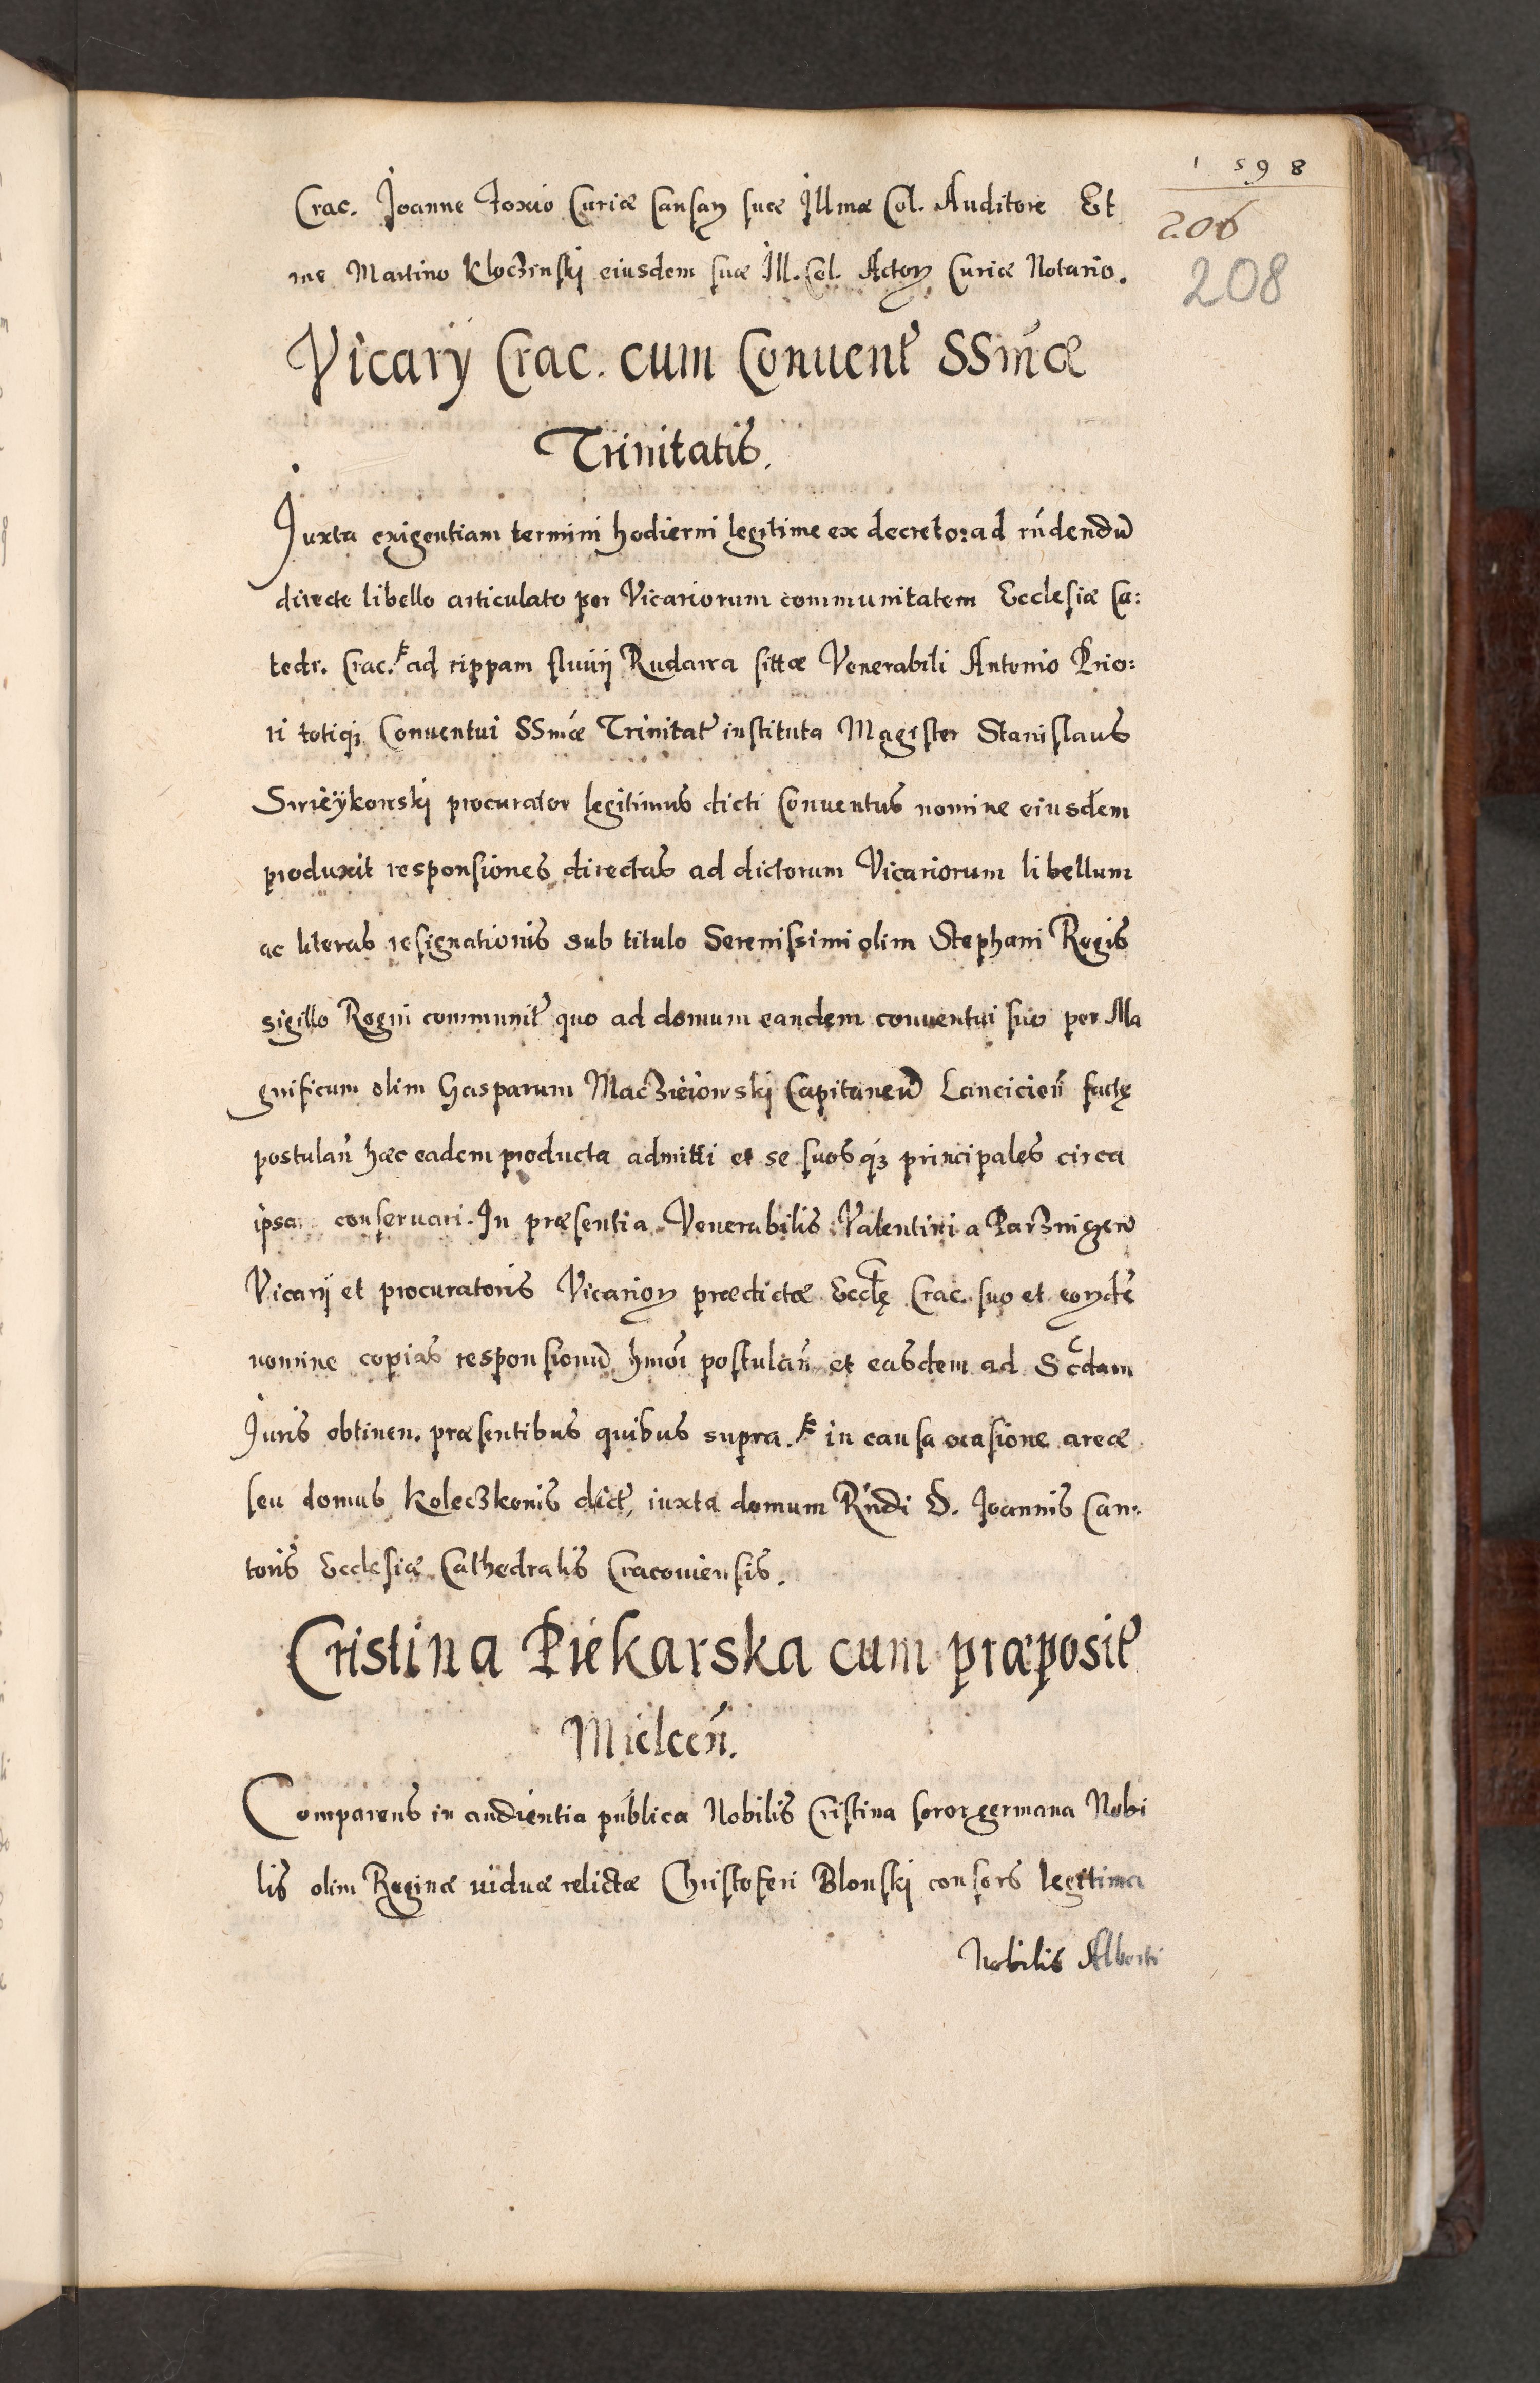 1598
206
208
Crac. Joanne Foxio Curiæ Causarꝝ suæ Illmæ Cel. Auditore Et
me Martino Kloczenski eiusdem suæ Ill. Cel. Actorꝝ Curiæ Notario.
Vicarij Crac. cum Conuent SSmæ
Trinitatis.
Juxta exigentiam termini hodierni legitime ex decreto: ad rñdendũ
directe libello articulato per Vicariorum communitatem Ecclesiæ Ca:
tedr. Crac. ad rippam fluuij Rudawa sittæ Venerabili Antonio Prio:
ri totiqꝫ Conuentui SSmæ Trinitat instituta Magister Stanislaus
Swieÿkowski procurator legitimus dicti Conuentus nomine eiusdem
produxit responsiones directas ad dictorum Vicariorum libellum
ac literas resignationis sub titulo Serenissimi olim Stephani Regis
sigillo Regni communit quo ad domum eandem conuentui suo per Ma
gnificum olim Gasparum Macziéiowski Capitaneũ Lancicieñ factę
postulañ hæc eadem producta admitti et se suosqꝫ principales circa
ipsa conseruari. In præsentia Venerabilis Valentini a
Vicarij et procuratoris Vicariorꝝ prædictæ Ecclę Crac. suo et eorꝝdẽ
nomine copias responsionũ hmõi postulañ et easdem ad Scdam
Juris obtinen. præsentibus quibus supra. in causa ocasione areæ
seu domus Koleczkonis dict, iuxta domum Rñdi D. Joannis Can:
toris Ecclesiæ Cathedralis Cracouiensis.
Cristina Piekarska cum præposit
Mieleceñ.
Comparens in audientia publica Nobilis Cristina soror germana Nobi
lis olim Reginæ uiduæ relictæ Christoferi Blonski consors legitima
Nobilis Alberti